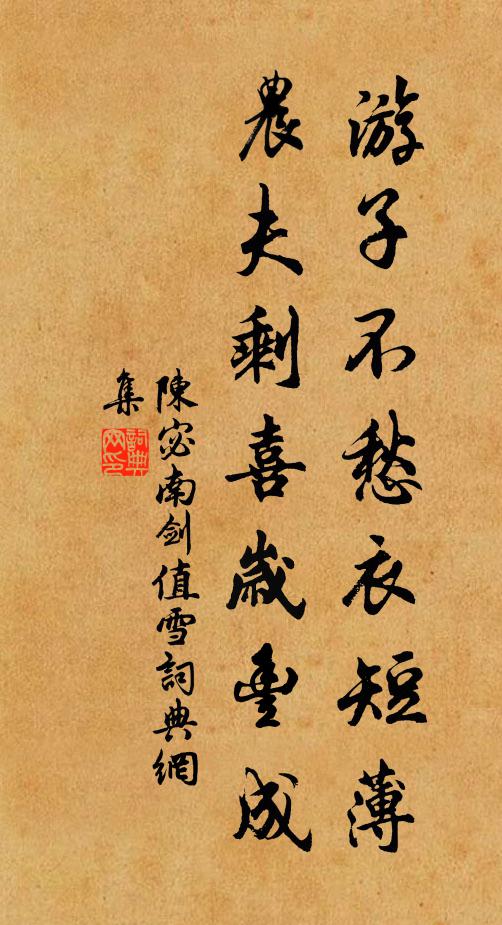 游子不愁衣短薄
農夫剩喜歲豊成
陳宓南劍值雪詞典網
集
詞典
网印